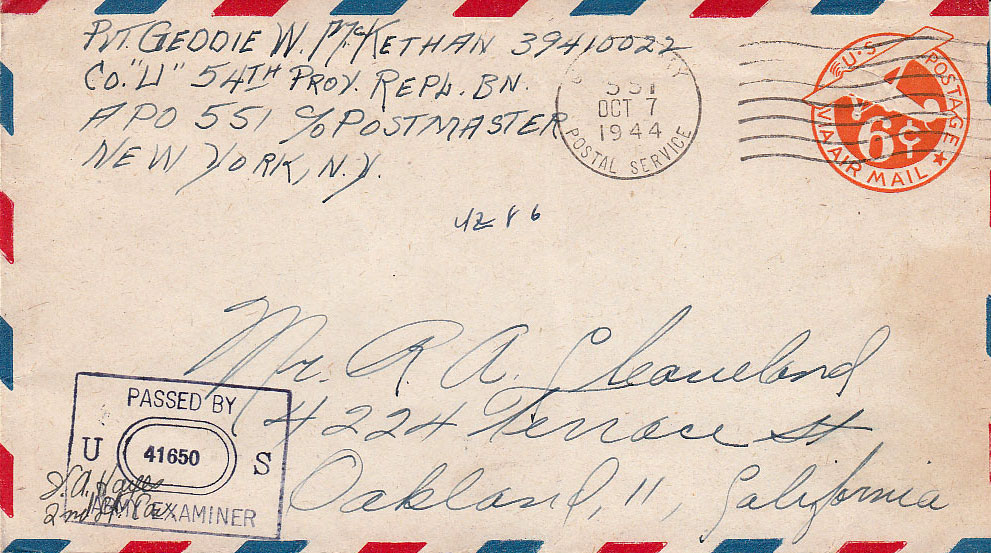 PVT. GEDDIE W. McKETHAN 39410022
CO. "U" 54TH PROV. REPL. BN.
APO 551 c/o POSTMASTER
NEW YORK, N.Y.
551
OCT 7
1944
POSTAL SERVICE
U.S. POSTAGE
6¢
VIA AIR MAIL
Mr. R. A. Cleaveland
4224 Terrace St
Oakland, 11, California
PASSED BY
U 41650 S
ARMY EXAMINER
2nd Lt.